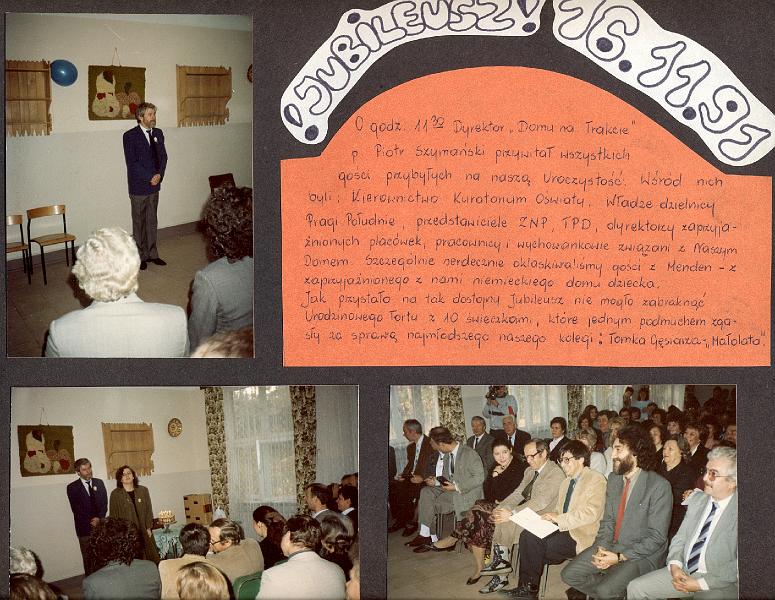 !JUBILEUSZ! 16.11.91
O godz. 11³⁰ Dyrektor „Domu na Trakcie"
p. Piotr Szymański przywitał wszystkich
gości przybyłych na naszą Uroczystość. Wśród nich
byli: Kierownictwo Kuratorium Oświaty, Władze dzielnicy
Pragi Południe, przedstawiciele ZNP, TPD, dyrektorzy zaprzyja-
źnionych placówek, pracownicy i wychowankowie związani z Naszym
Domem. Szczególnie serdecznie oklaskiwaliśmy gości z Menden - z
zaprzyjaźnionego z nami niemieckiego domu dziecka.
Jak przystało na tak dostojny Jubileusz nie mogło zabraknąć
Urodzinowego Tortu z 10 świeczkami, które jednym podmuchem zga-
sły za sprawą najmłodszego naszego kolegi: Tomka Gęsiarza-„Małolata".